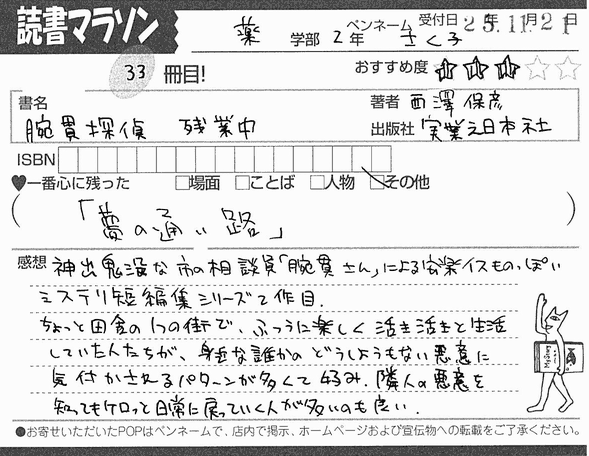 読書マラソン
薬 学部 2年 ペンネーム さく子 受付日 25年11月21日
33 冊目! おすすめ度 ★★★☆☆
書名 腕貫探偵 残業中
著者 西澤 保彦
出版社 実業之日本社
ISBN
♥一番心に残った □場面 □ことば □人物 ☑その他
(「夢の通い路」)
感想 神出鬼没な市の相談員「腕貫さん」による安楽イスものっぽい
ミステリ短編集シリーズ2作目.
ちょっと田舎の1つの街で、ふつうに楽しく活き活きと生活
していた人たちが、身近な誰かのどうしようもない悪意に
気付かされるパターンが多くて好み. 隣人の悪意を
知ってもケロっと日常に戻っていく人が多いのも良い.
●お寄せいただいたPOPはペンネームで、店内で掲示、ホームページおよび宣伝物への転載をご了承ください。